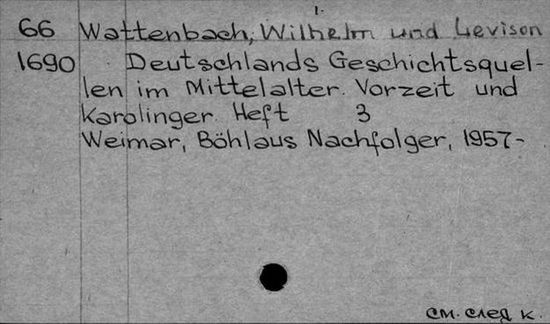 1.
66 Wattenbach, Wilhelm und Levison
1690 Deutschlands Geschichtsquel-
len im Mittelalter. Vorzeit und
Karolinger. Heft 3
Weimar, Böhlaus Nachfolger, 1957-
см. след к.